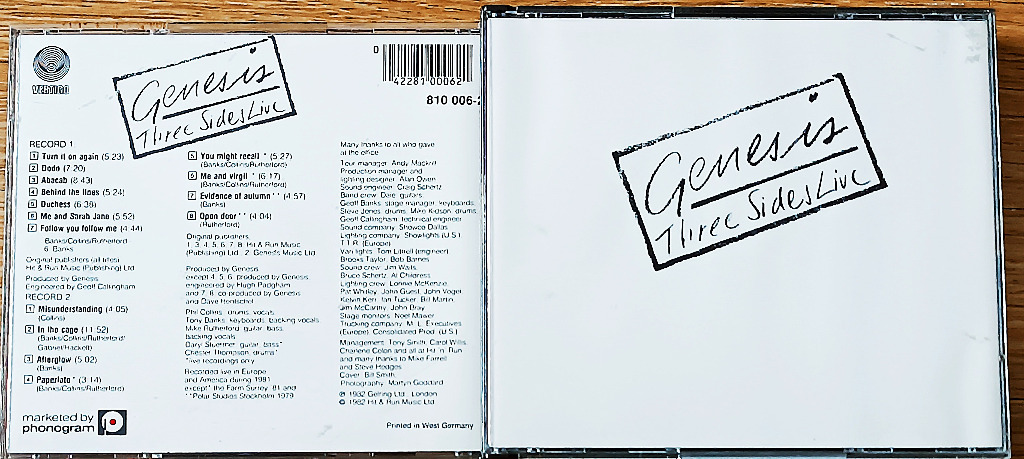 VERTIGO
Genesis
Three Sides Live
0
42281 00062
810 006-2
RECORD 1
1 Turn it on again (5:23)
2 Dodo (7:20)
3 Abacab (8:43)
4 Behind the lines (5:24)
5 Duchess (6:38)
6 Me and Sarah Jane (5:52)
7 Follow you follow me (4:44)
Banks/Collins/Rutherford
6: Banks
Original publishers (all titles)
Hit & Run Music (Publishing) Ltd
Produced by Genesis
Engineered by Geoff Callingham
RECORD 2
1 Misunderstanding (4:05)
(Collins)
2 In the cage (11:52)
(Banks/Collins/Rutherford/
Gabriel/Hackett)
3 Afterglow (5:02)
(Banks)
4 Paperlate * (3:14)
(Banks/Collins/Rutherford)
marketed by
phonogram
5 You might recall * (5:27)
(Banks/Collins/Rutherford)
6 Me and virgil * (6:17)
(Banks/Collins/Rutherford)
7 Evidence of autumn ** (4:57)
(Banks)
8 Open door ** (4:04)
(Rutherford)
Original publishers:
1, 3, 4, 5, 6, 7, 8: Hit & Run Music
(Publishing) Ltd., 2: Genesis Music Ltd
Produced by Genesis
except 4, 5, 6, produced by Genesis
engineered by Hugh Padgham
and 7, 8 co produced by Genesis
and Dave Hentschel
Phil Collins: drums, vocals
Tony Banks: keyboards, backing vocals
Mike Rutherford: guitar, bass,
backing vocals
Daryl Stuermer: guitar, bass*
Chester Thompson: drums*
*live recordings only
Recorded live in Europe
and America during 1981
except * the Farm Surrey '81 and
**Polar Studios Stockholm 1979
Many thanks to all who gave
at the office
Tour manager: Andy Mackrill
Production manager and
lighting designer: Alan Owen
Sound engineer: Craig Schertz
Band crew: Dale: guitars
Geoff Banks: stage manager, keyboards
Steve Jones: drums, Mike Kidson: drums
Geoff Callingham: technical engineer
Sound company: Showco Dallas
Lighting company: Showlights (U.S.)
T.F.R. (Europe)
Vari lights: Tom Littrell (engineer)
Brooks Taylor, Bob Barnes
Sound crew: Jim Waits,
Bruce Schertz, Al Childress
Lighting crew: Lonnie McKenzie
Pat Whitley, John Guest, John Vogel,
Kelvin Kerr, Ian Tucker, Bill Martin,
Jim McCarthy, John Bray
Stage monitors: Noel Mawer
Trucking company: M.L. Executives
(Europe), Consolidated Prod. (U.S.)
Management: Tony Smith, Carol Willis,
Charlene Colon and all at Hit 'n' Run
and many thanks to Mike Farrell
and Steve Hedges
Cover: Bill Smith
Photography: Martyn Goddard
℗ 1982 Gelring Ltd., London
© 1982 Hit & Run Music Ltd
Printed in West Germany
Genesis
Three Sides Live